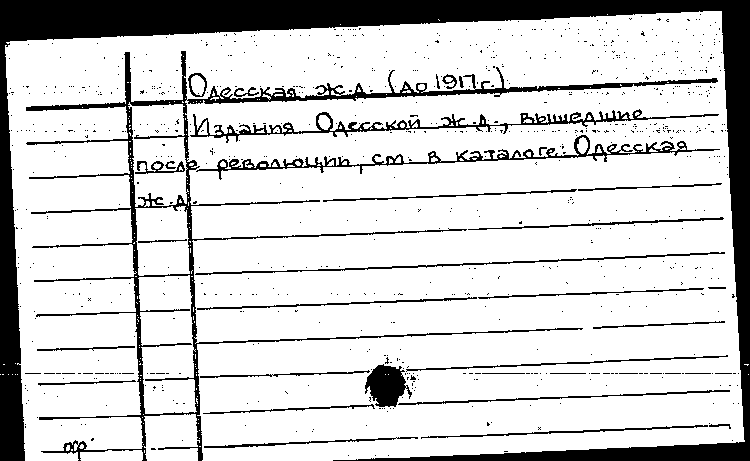 Одесская ж.д. (до 1917 г.)
Издания Одесской ж.д., вышедшие
после революции, см. в каталоге: Одесская
ж.д.